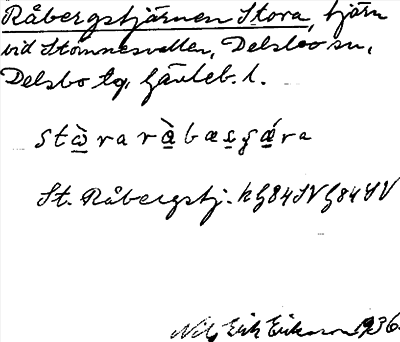 Råbergstjärnen Stora, tjärn
vid Stömnesvallen, Delsbo sn,
Delsbo tg, Gävleb. l.
St. Råbergstj. k G84SV G84SV
Nils Erik Eriksson 1936.